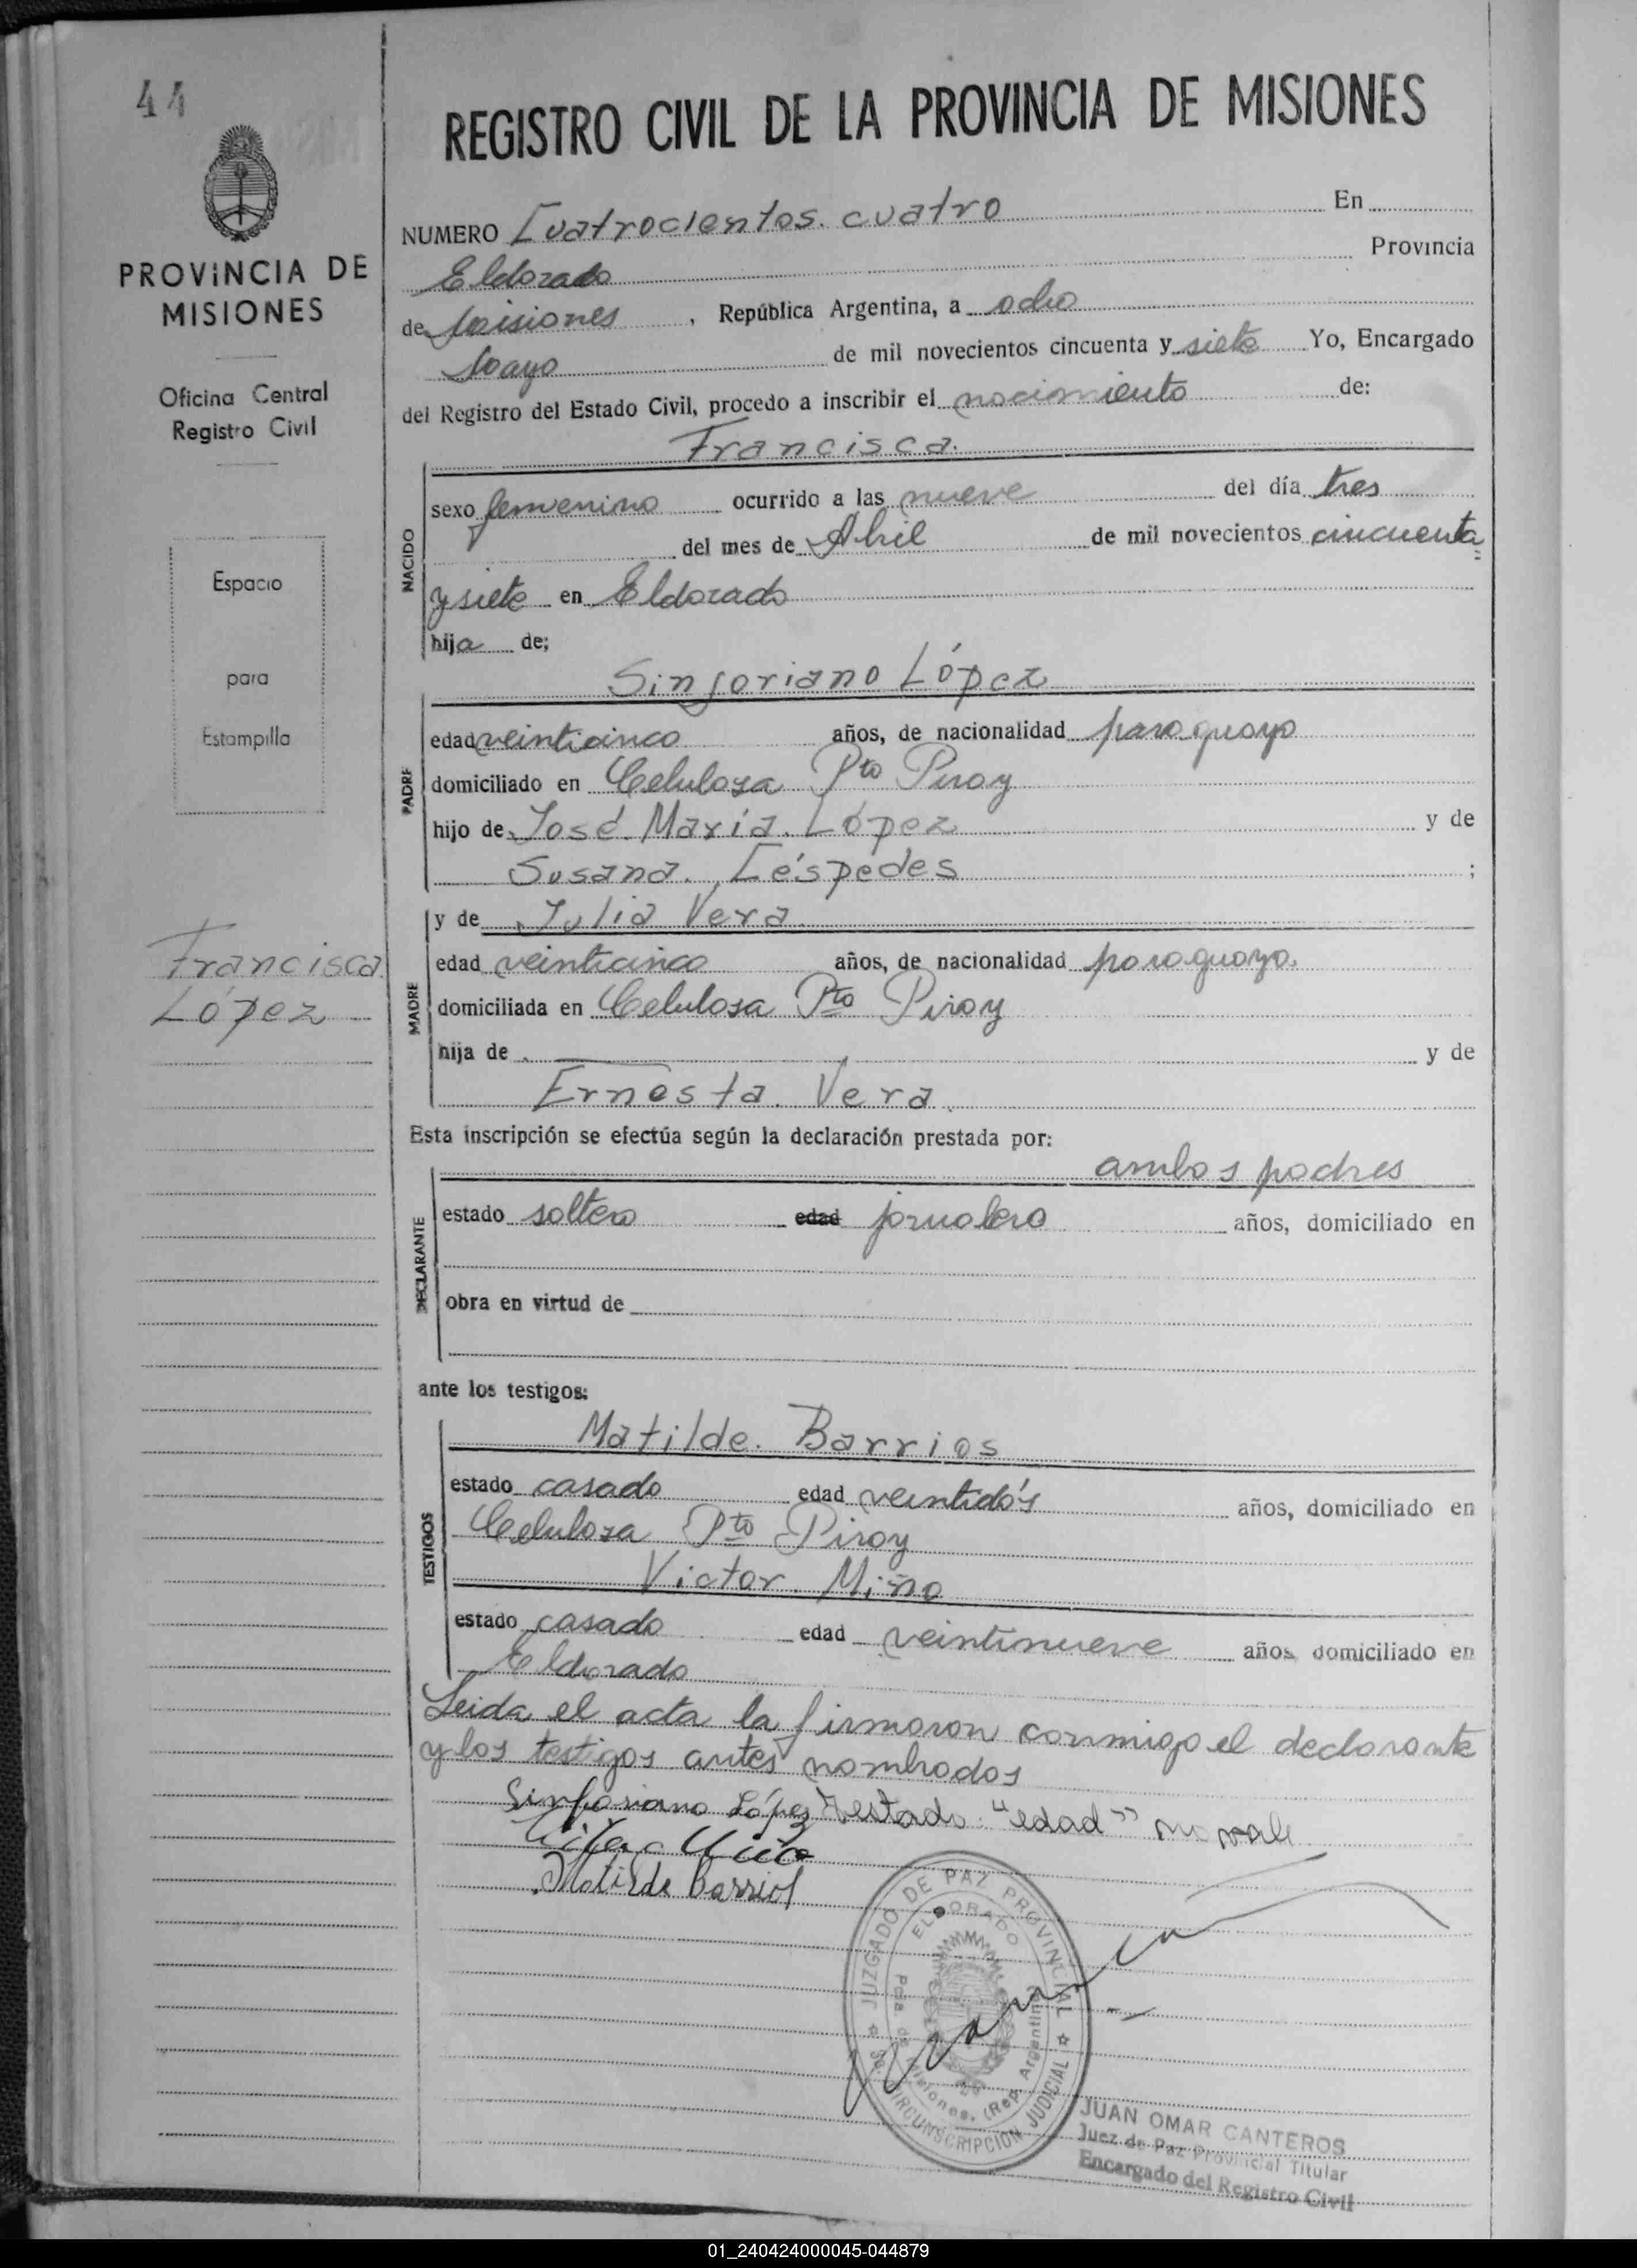 44
PROVINCIA DE
MISIONES
Oficina Central
Registro Civil
Espacio
para
Estampilla
Francisca
López
REGISTRO CIVIL DE LA PROVINCIA DE MISIONES
NUMERO Cuatrocientos cuatro En
Eldorado Provincia
de Misiones, República Argentina, a ocho
Mayo de mil novecientos cincuenta y siete Yo, Encargado
del Registro del Estado Civil, procedo a inscribir el nacimiento de:
Francisca
NACIDO
sexo femenino ocurrido a las nueve del día tres
del mes de Abril de mil novecientos cincuenta
y siete en Eldorado
hija de;
Sinforiano López
PADRE
edad veinticinco años, de nacionalidad paraguayo
domiciliado en Celulosa Pto Piray
hijo de José María López y de
Susana Céspedes ;
y de Julia Vera
MADRE
edad veinticinco años, de nacionalidad paraguaya
domiciliada en Celulosa Pto Piray
hija de — y de
Ernesta Vera
Esta inscripción se efectúa según la declaración prestada por:
ambos padres
DECLARANTE
estado soltero edad jornalero años, domiciliado en
obra en virtud de
ante los testigos:
Matilde Barrios
TESTIGOS
estado casado edad veintidós años, domiciliado en
Celulosa Pto Piray
Victor Miño
estado casado edad veintinueve años domiciliado en
Eldorado
Leida el acta la firmaron conmigo el declarante
y los testigos antes nombrados
Sinforiano López Testado: "edad" no vale
Matilde Barrios
JUZGADO DE PAZ PROVINCIAL
ELDORADO
Pcia de Misiones. (Rep. Argentina)
CIRCUNSCRIPCION JUDICIAL
JUAN OMAR CANTEROS
Juez de Paz Provincial Titular
Encargado del Registro Civil
01_240424000045-044879